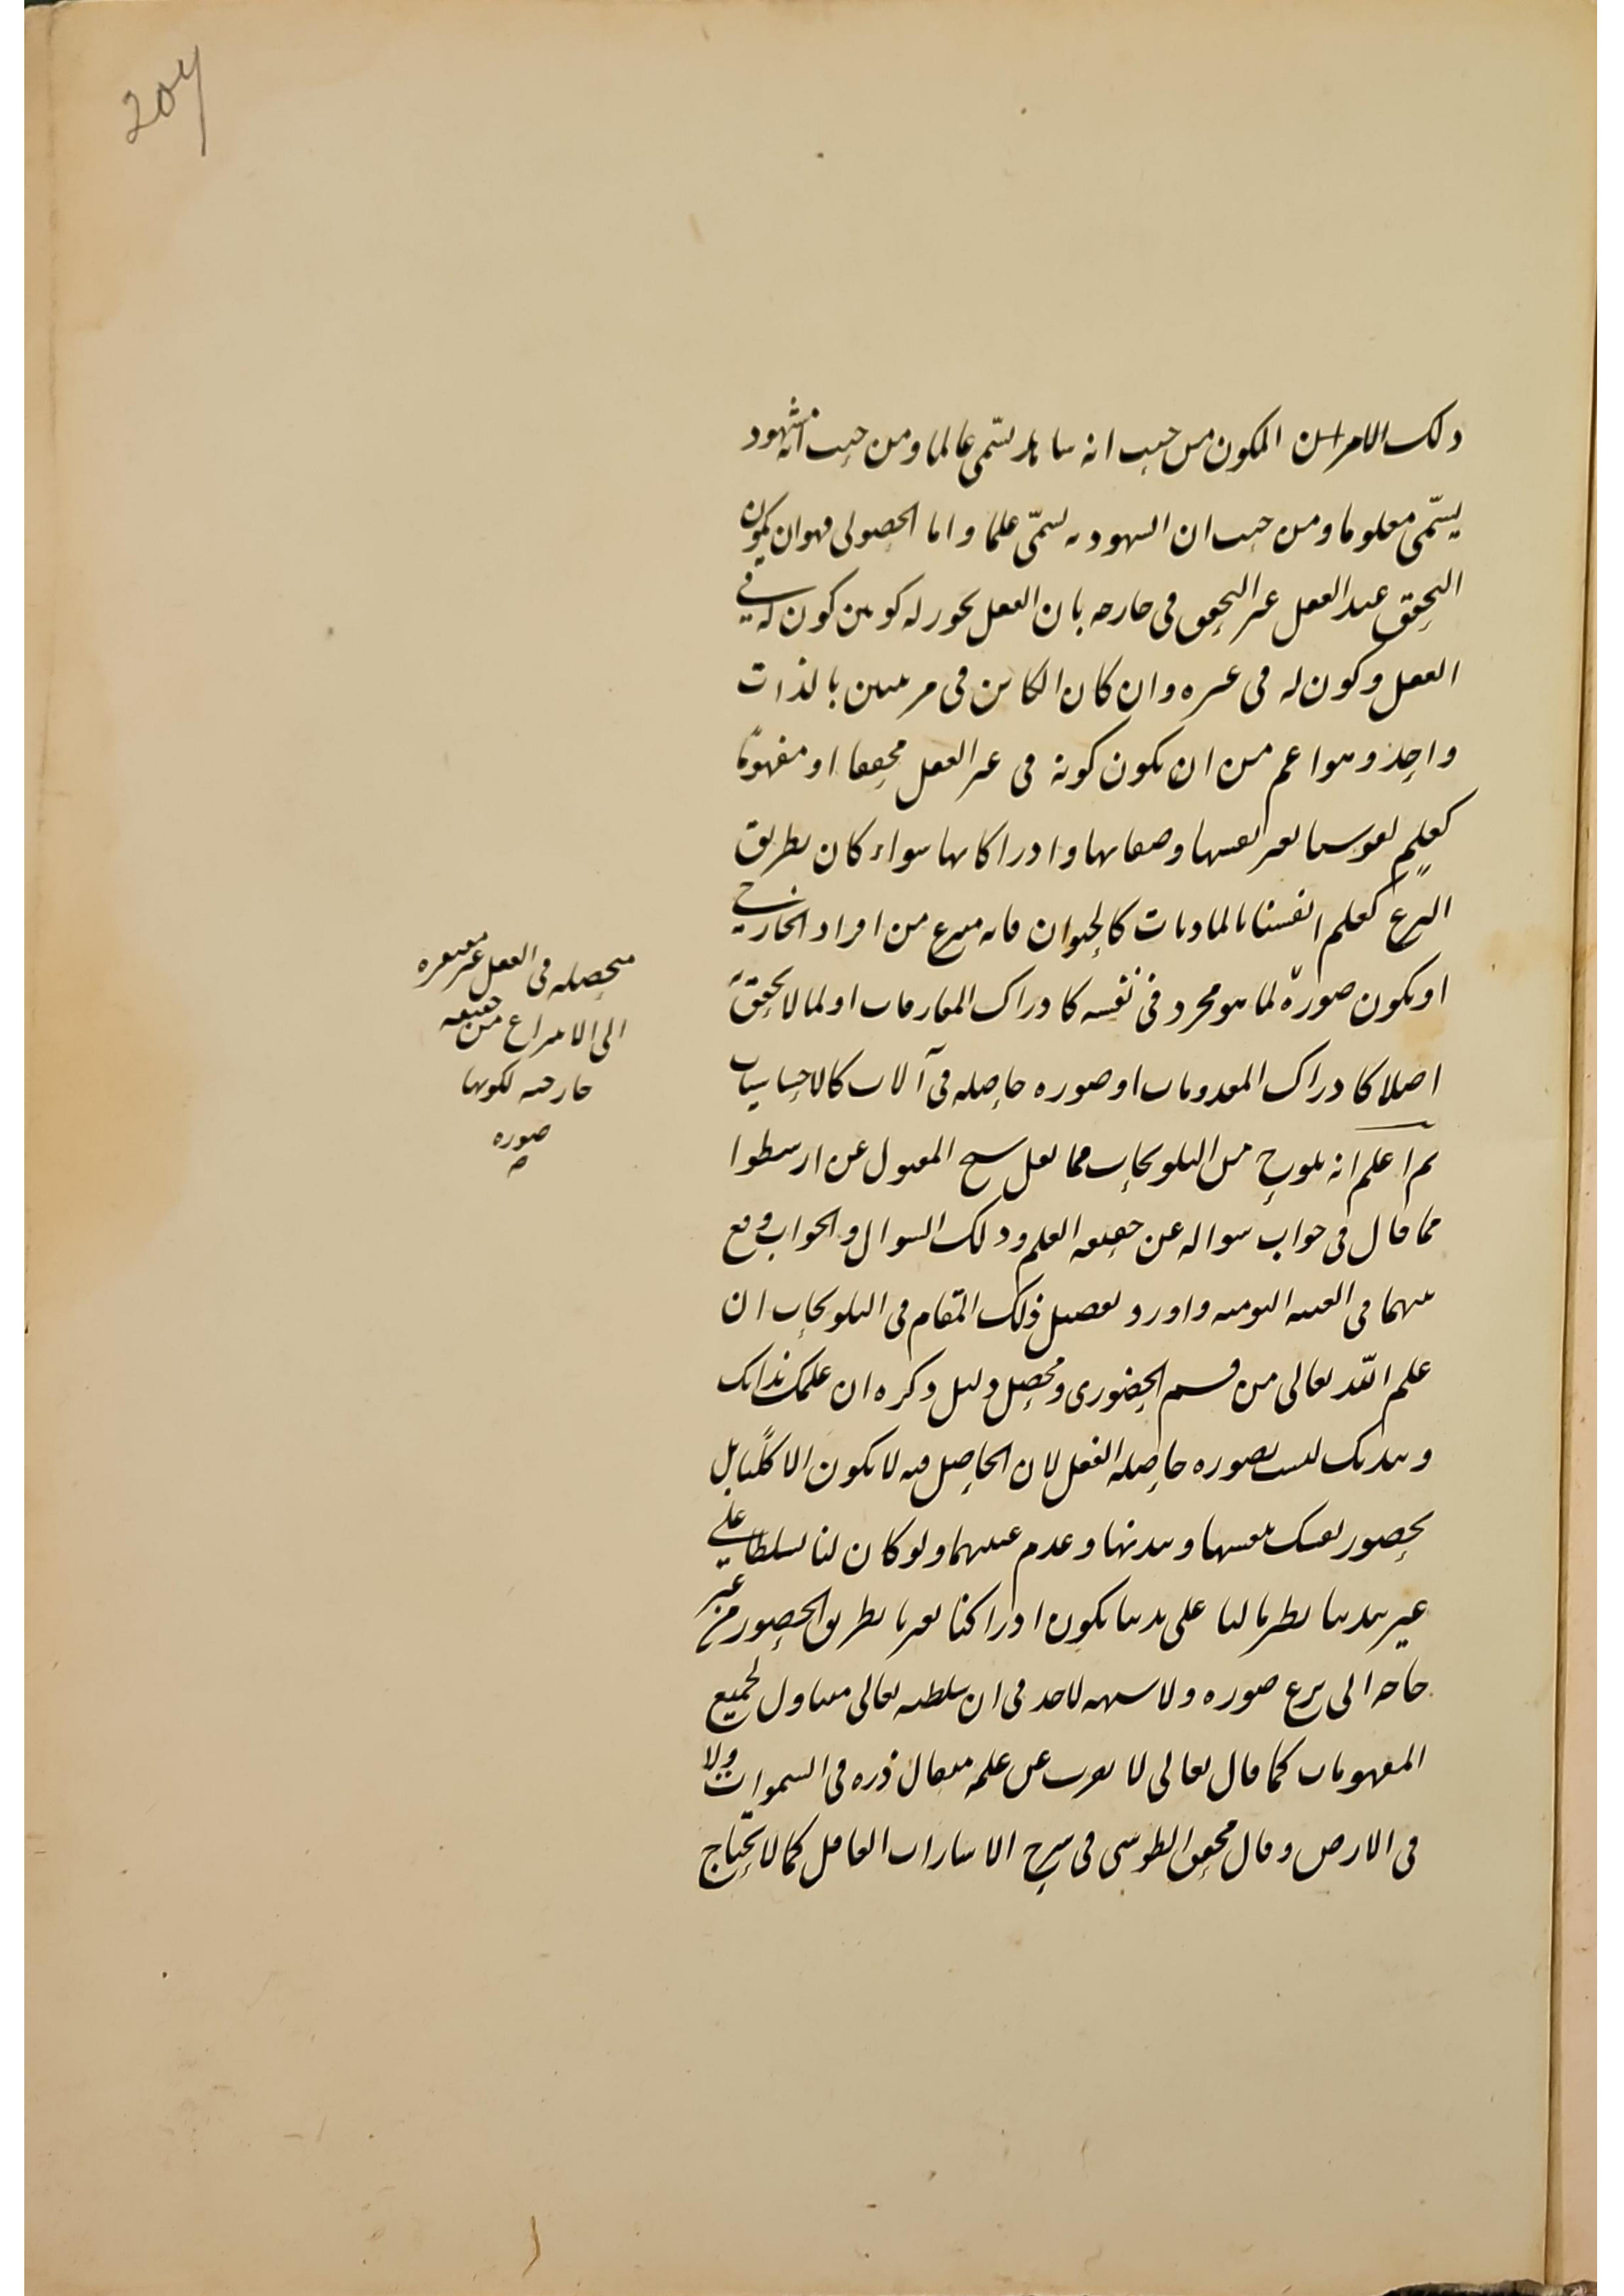 204
ذلك الامر اين المكون من حيث انه شاهد يسمّى عالما ومن حيث انه مشهود
يسمّى معلوما ومن حيث ان الشهود به يسمّى علما واما الحصولى فهو ان يكون
التحقق عند العقل غير التحقق فى خارجه بان العقل يجوز له كونين كون له فى
العقل وكون له فى غيره وان كان الكائن فى مرتبتين بالذات
واحد وهو اعم من ان يكون كونه فى غير العقل محققا او مفهوما
كعلم نفوسنا بغير نفسها وصفاتها وادراكاتها سواء كان بطريق
النزع كعلم انفسنا بالماديات كالحيوان فانه منتزع من افراد الخارجى
او يكون صورة لما هو مجرد فى نفسه كادراك المفارقات او لما لا تحقق له
اصلا كادراك المعدومات او صورة حاصلة فى آلات كالاحساسيات
ثم اعلم انه يلوح من التلويحات مما نقل شيخ المقتول عن ارسطوا
مما قال فى جواب سواله عن حقيقة العلم وذلك السوال والجواب وقع
بينهما فى الغيبة النومية واورد تفصيل ذلك المقام فى التلويحات ان
علم الله تعالى من قسم الحضورى ومحصل دليل ذكره ان علمك بذاتك
وبدنك ليست بصورة حاصلة العقل لان الحاصل فيه لا يكون الا كليا بل
بحضور نفسك بنفسها وبدنها وعدم غيبتهما ولو كان لنا تسلطا على
غير بدننا نظير ما لنا على بدننا يكون ادراكنا لغيرنا بطريق الحضور من غير
حاجة الى نزع صورة ولا شبهة لاحد فى ان سلطنته تعالى متناول لجميع
المفهومات كما قال تعالى لا يعزب عن علمه مثقال ذرة فى السموات ولا
فى الارض وقال محقق الطوسى فى شرح الاشارات العاقل كما لا يحتاج
متحصلة فى العقل غير مفتقرة
الى الانتزاع من حقيقة
خارجية لكونها
صورة